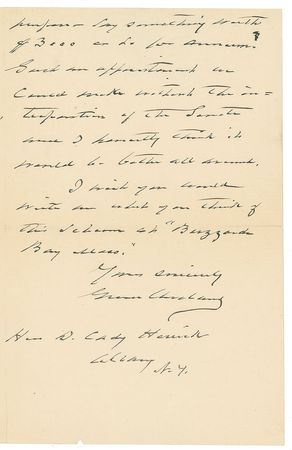 purpose - say something worth
of 3000 or so per annum?
Such an appointment we
could make without the in-
terposition of the Senate
and I honestly think it
would be better all around.
I wish you would
write me what you think of
this scheme at "Buzzards
Bay Mass."
Yours sincerely
Grover Cleveland
Hon D. Cady Herrick
Albany
N.Y.